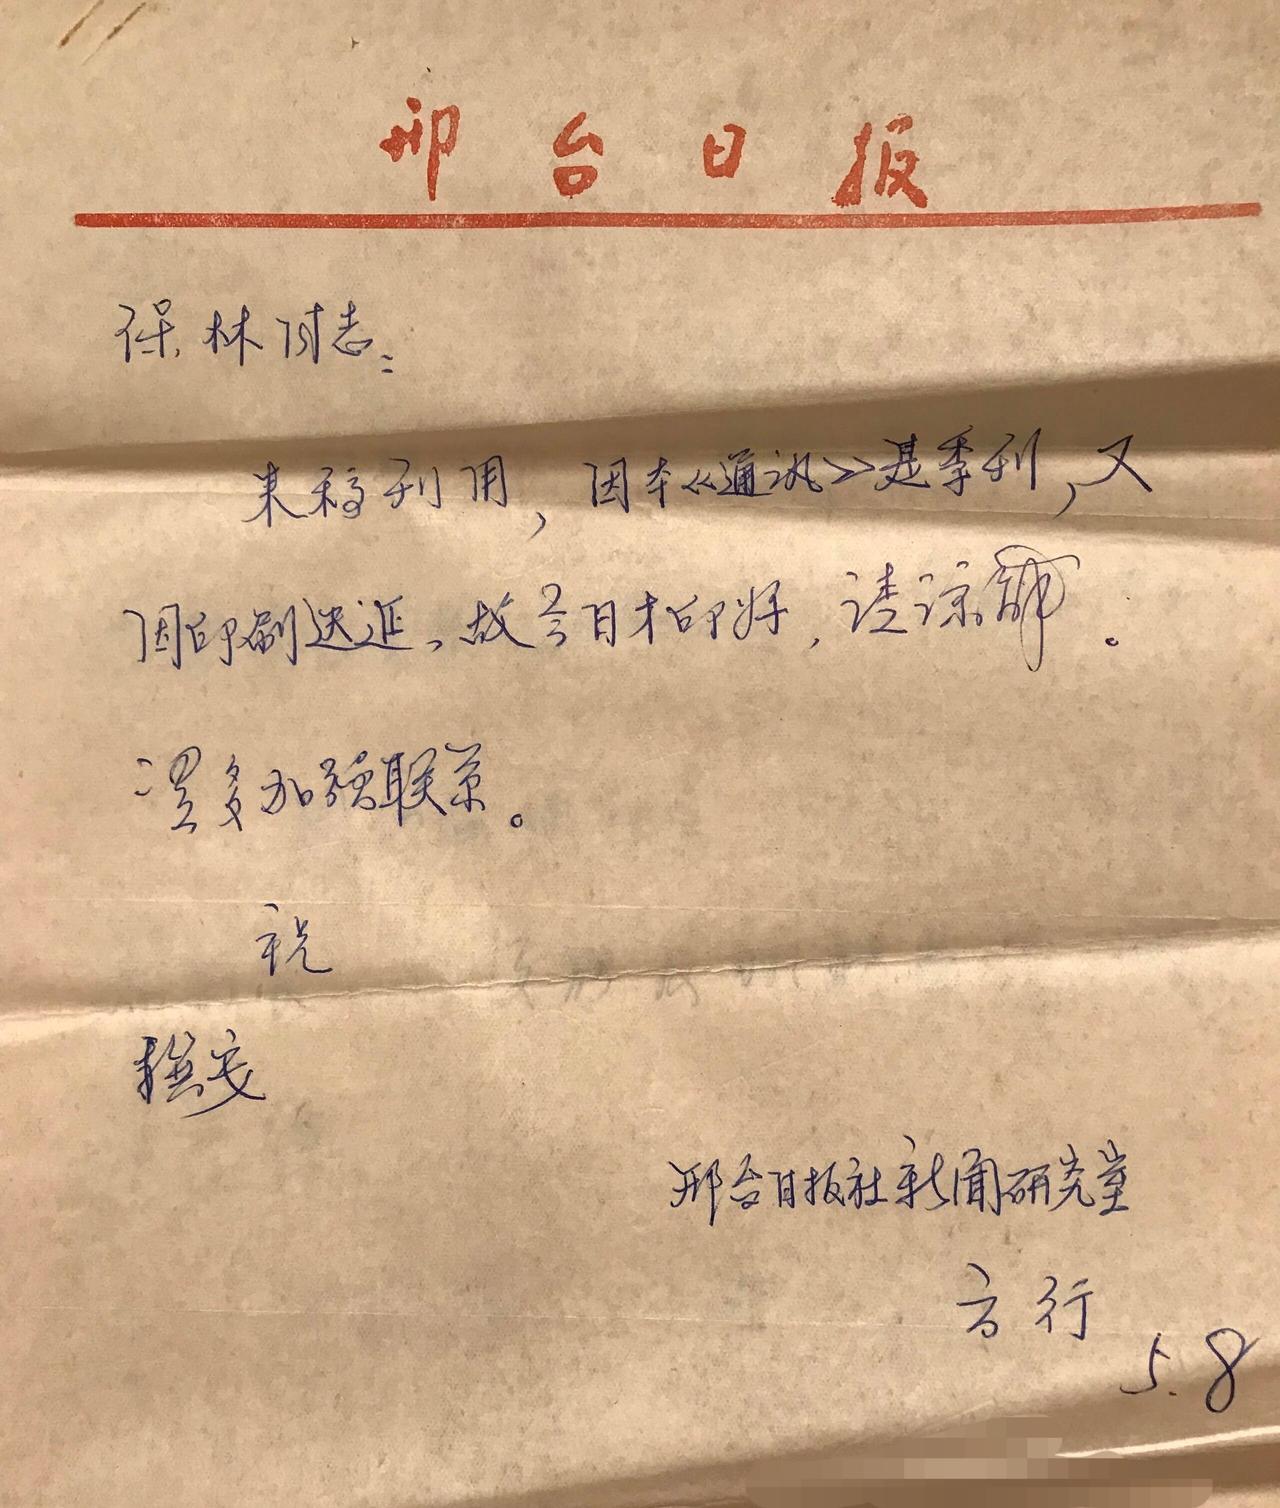 邢台日报
保林同志：
来稿刊用，因本《通讯》是季刊，又
因印刷迟延，故今日才印好，请谅解。
望多加强联系。
祝
撰安
邢台日报社新闻研究室
方行
5.8